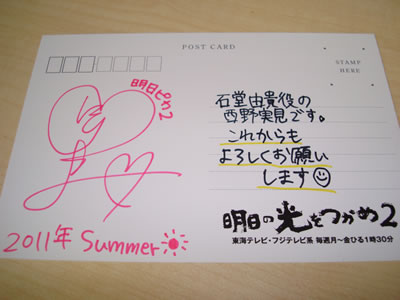 POST CARD
STAMP
HERE
明日ピカ2
2011年 Summer
石堂由貴役の
西野実見です。
これからも
よろしくお願い
します
明日の光をつかめ2
東海テレビ・フジテレビ系 毎週月〜金ひる1時30分